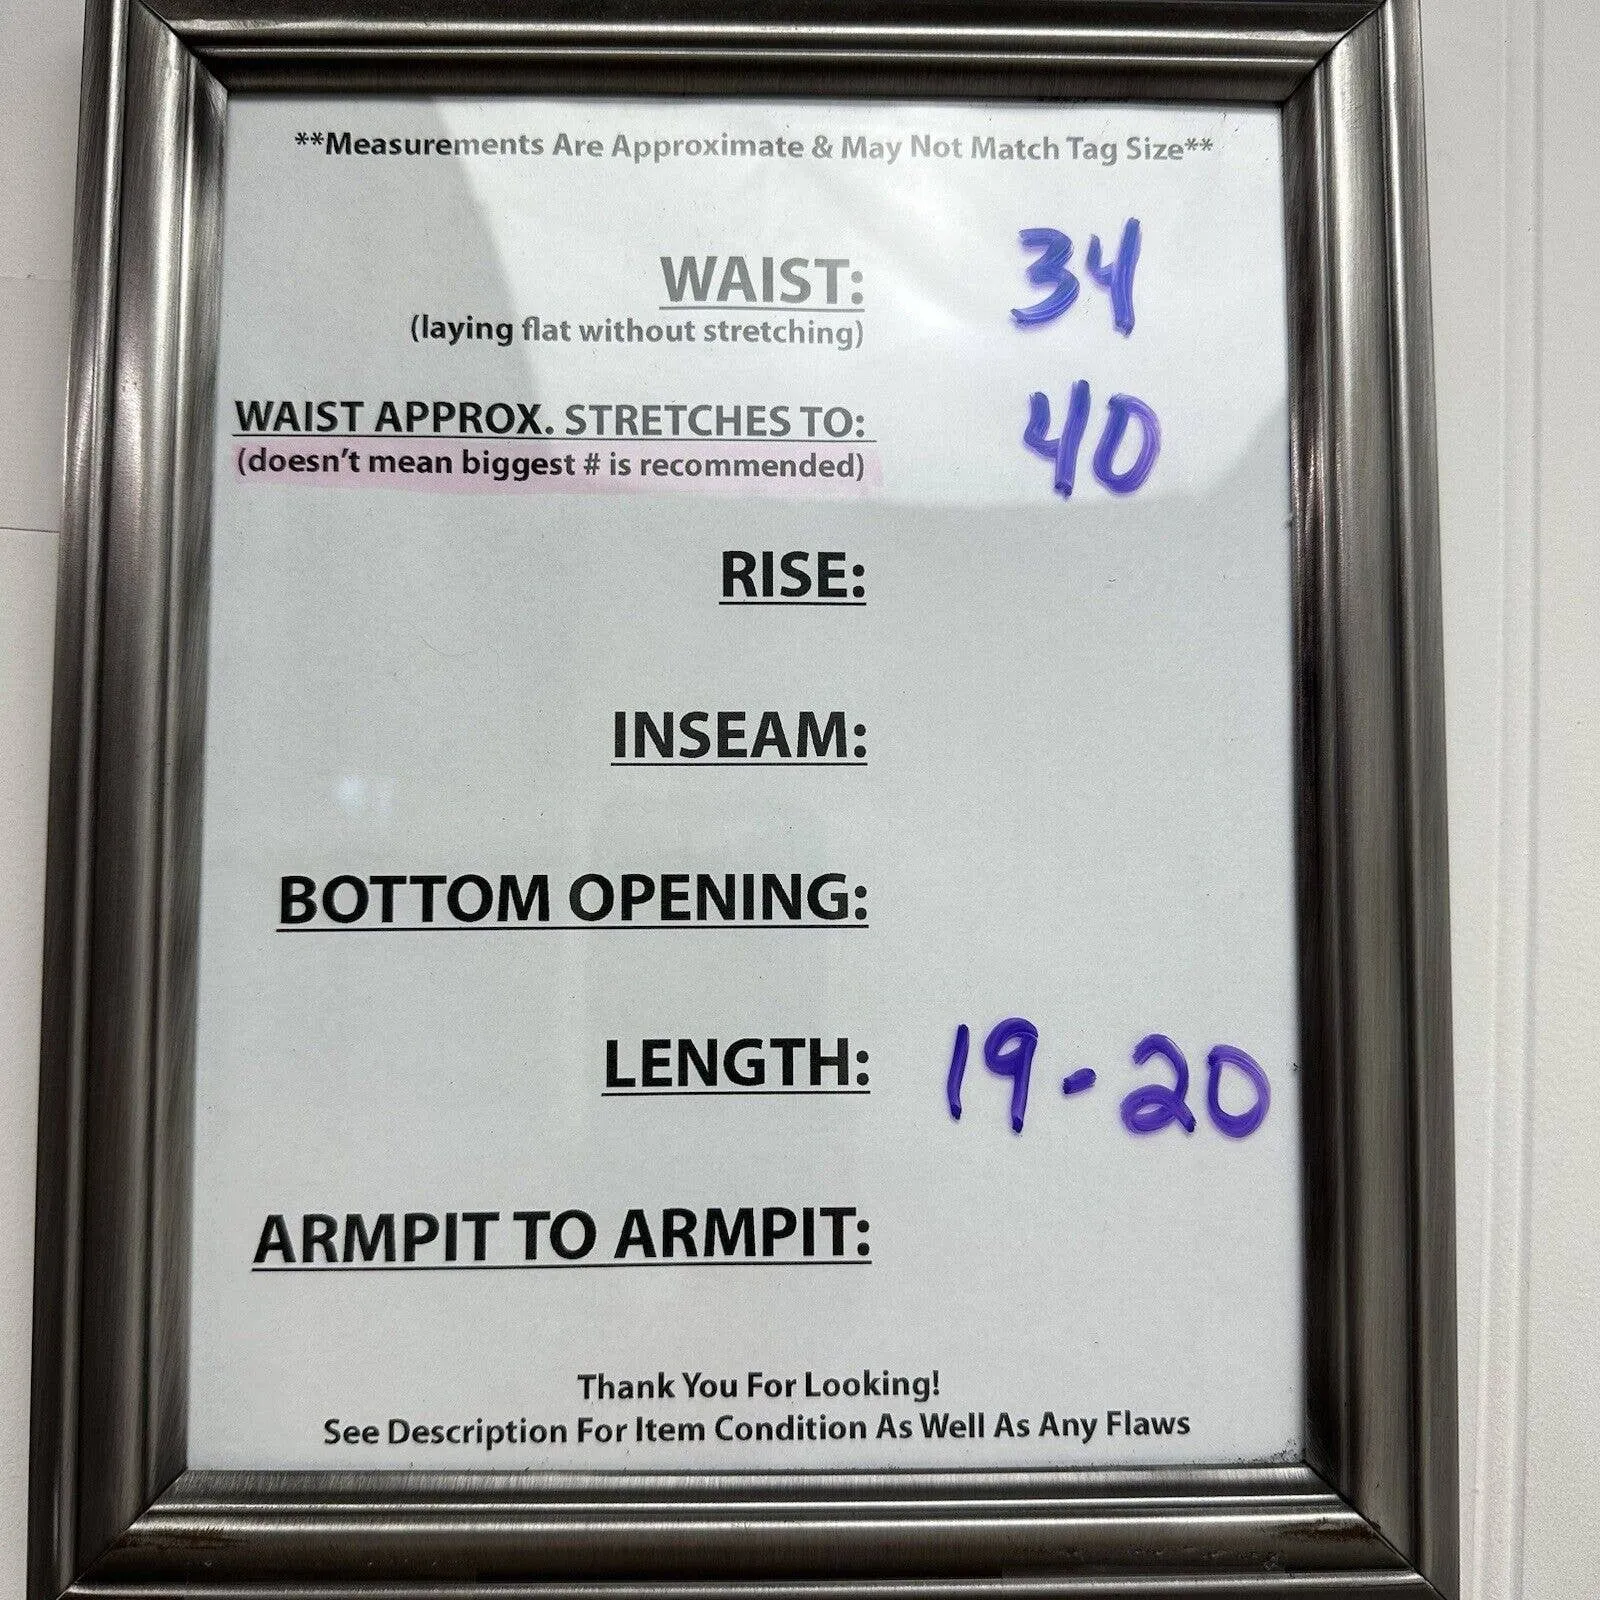 **Measurements Are Approximate & May Not Match Tag Size**
WAIST: 34
(laying flat without stretching)
WAIST APPROX. STRETCHES TO: 40
(doesn't mean biggest # is recommended)
RISE:
INSEAM:
BOTTOM OPENING:
LENGTH: 19-20
ARMPIT TO ARMPIT:
Thank You For Looking!
See Description For Item Condition As Well As Any Flaws